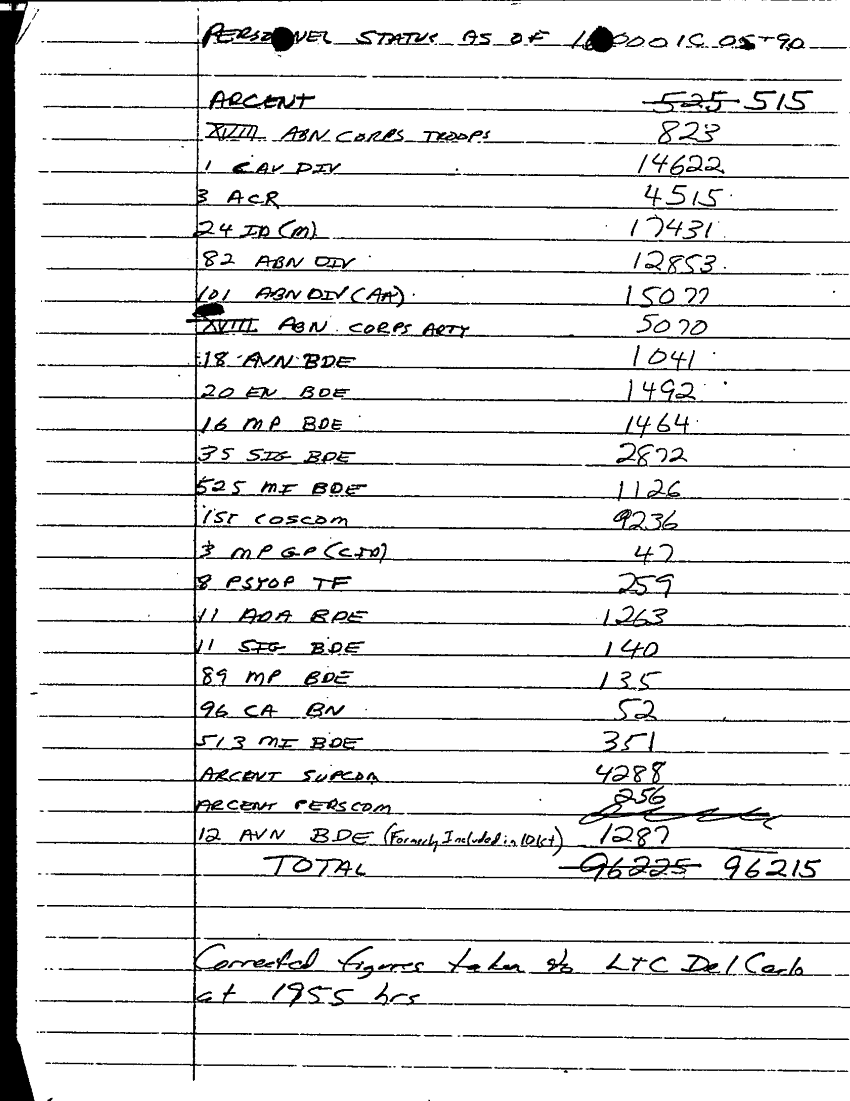 PERSONNEL STATUS AS OF 0001C OCT 90
ARCENT 525 515
XVIII ABN CORPS TROOPS 823
1 CAV DIV 14622
3 ACR 4515
24 ID (M) 17431
82 ABN DIV 12853
101 ABN DIV (AA) 15077
XVIII ABN CORPS ARTY 5070
18 AVN BDE 1041
20 EN BDE 1492
16 MP BDE 1464
35 SIG BDE 2872
525 MI BDE 1126
1ST COSCOM 9236
3 MP GP (CID) 47
8 PSYOP TF 259
11 ADA BDE 1263
11 SIG BDE 140
89 MP BDE 135
96 CA BN 52
513 MI BDE 351
ARCENT SUPCOM 4288
ARCENT PERSCOM 256
12 AVN BDE (Formerly Included in 101st) 1287
TOTAL 96225 96215
Corrected figures taken LTC Del Carlo
at 1955 hrs